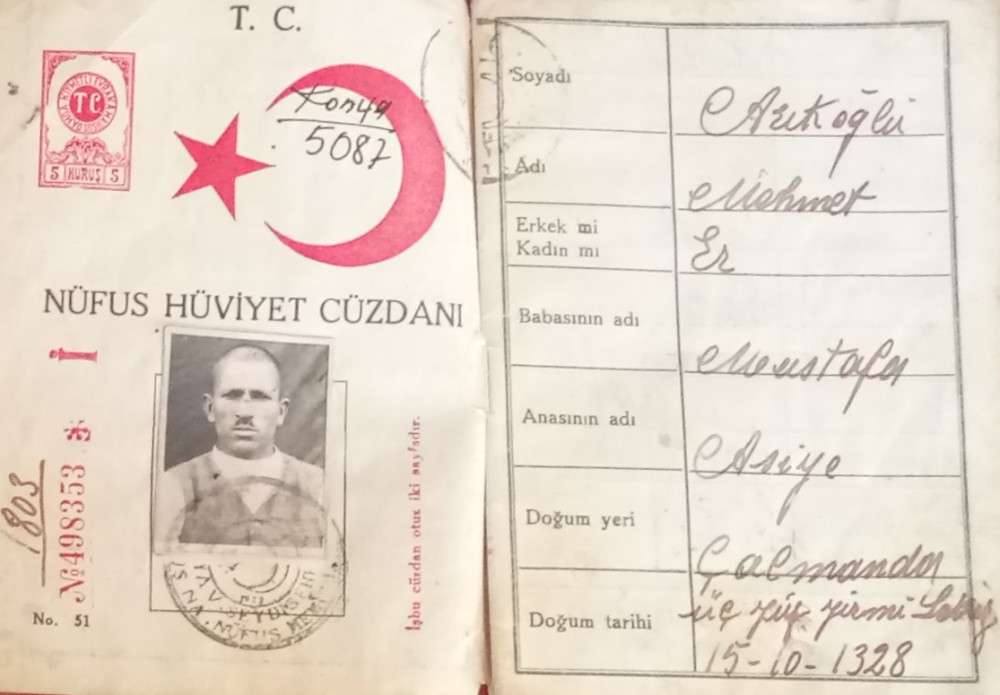 T. C.
TC
5 KURUŞ 5
Konya
5087
NÜFUS HÜVİYET CÜZDANI
1803
№ 498353
No. 51
İşbu cüzdan otuz iki sayfadır.
NÜFUS
Soyadı
Arıkoğlu
Adı
Mehmet
Erkek mi
Kadın mı
Er
Babasının adı
Mustafa
Anasının adı
Asiye
Doğum yeri
Çalmanda
Doğum tarihi
üç yüz yirmi Sekiz
15-10-1328